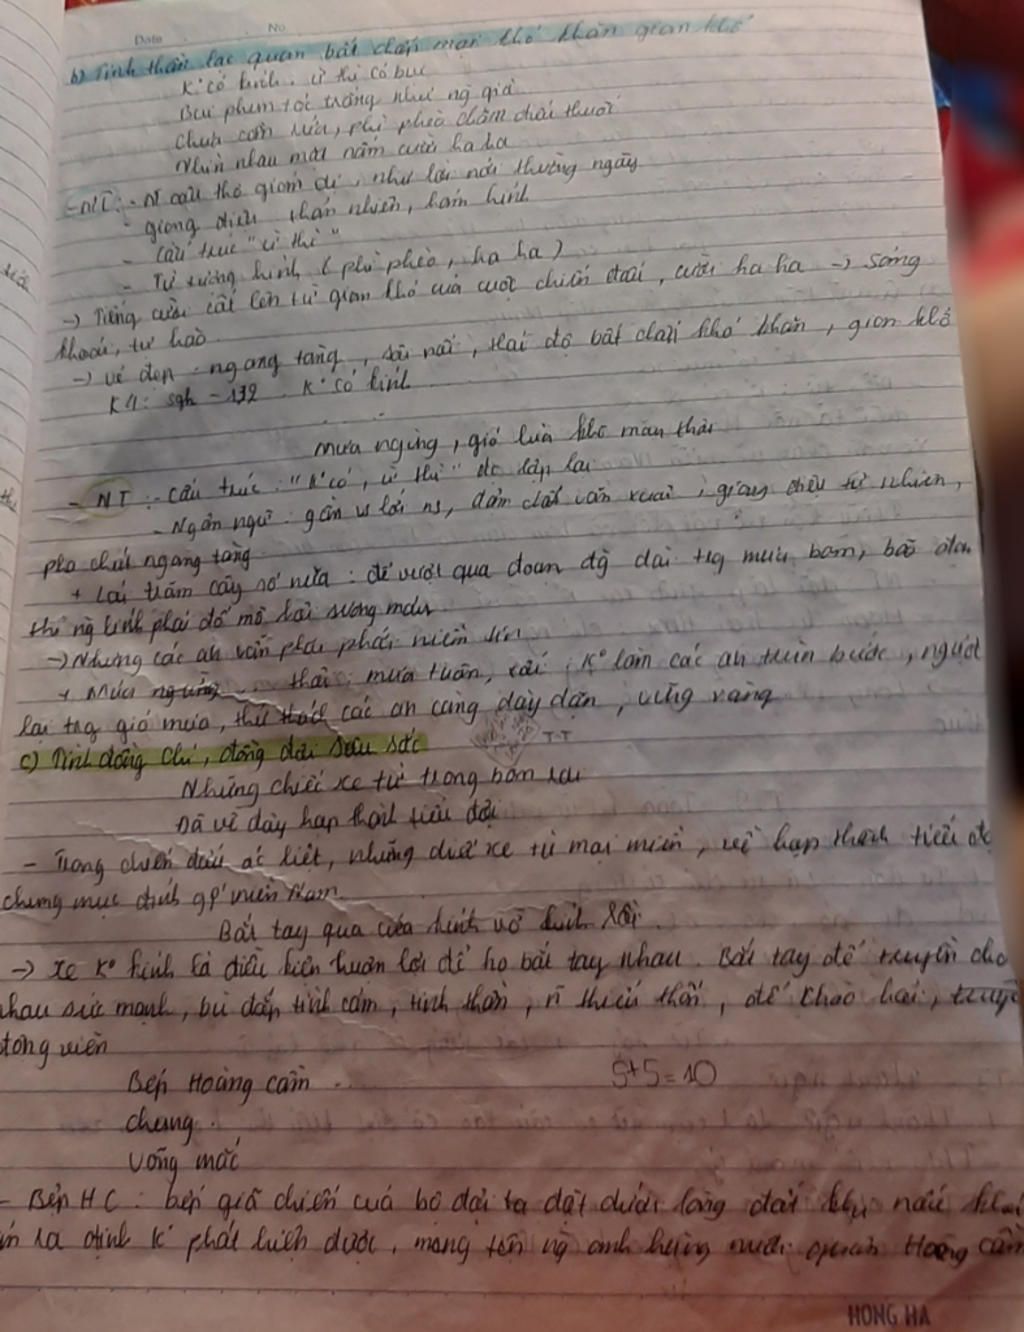 Date No
b) Tinh thần lạc quan bất chấp mọi khó khăn gian khổ
K° có kính, ừ thì có bụi
Bụi phun tóc trắng như ng già
Chưa cần rửa, phì phèo châm điếu thuốc
Nhìn nhau mặt lấm cười ha ha
- NT: - N câu thơ giản dị, như lời nói thường ngày
- giọng điệu thản nhiên, hóm hỉnh
- Cấu trúc "ừ thì"
- Từ tượng hình (phì phèo, ha ha)
→ Tiếng cười cất lên từ gian khó của cuộc chiến đấu, cười ha ha → sảng
khoái, tự hào
→ vẻ đẹp: ngang tàng, sôi nổi, thái độ bất chấp khó khăn, gian khổ
K4: sgk - 132. K° có kính
Mưa ngừng, gió lùa khô mau thôi
- NT: - Cấu trúc: "K° có, ừ thì" đc lặp lại
- Ngôn ngữ: gần vs lời ns, đậm chất văn xuôi, giọng điệu tự nhiên,
pha chút ngang tàng
+ Lái trăm cây số nữa: để vượt qua đoạn đg dài trg mưa bom, bão đạn
thì ng lính phải đổ mồ hôi xương máu
→ Nhưng các anh vẫn phơi phới niềm tin
+ Mưa ngừng ... thôi: mưa tuôn, xối; K° làm các anh chùn bước, ngược
lại trg gió mưa, thử thách các an càng dày dặn, vững vàng
c) Tình đồng chí, đồng đội sâu sắc T.T
Những chiếc xe từ trong bom rơi
Đã về đây họp thành tiểu đội
- Trong chiến đấu ác liệt, những chiếc xe từ mọi miền, về họp thành tiểu độ
chung mục đích gp' miền Nam
Bắt tay qua cửa kính vỡ rồi
→ Xe K° kính là điều kiện thuận lợi để họ bắt tay nhau. Bắt tay để truyền cho
nhau sức mạnh, bù đắp tình cảm, tinh thần, để chào hỏi,
động viên
Bếp Hoàng Cầm ...
5+5=10
Chung ..
Võng mắc
- Bếp HC: bếp dã chiến của bộ đội ta đặt dưới lòng đất khi nấu
K° phát hiện được, mang tên ng anh hùng nuôi quân Hoàng Cầm
HONG HA